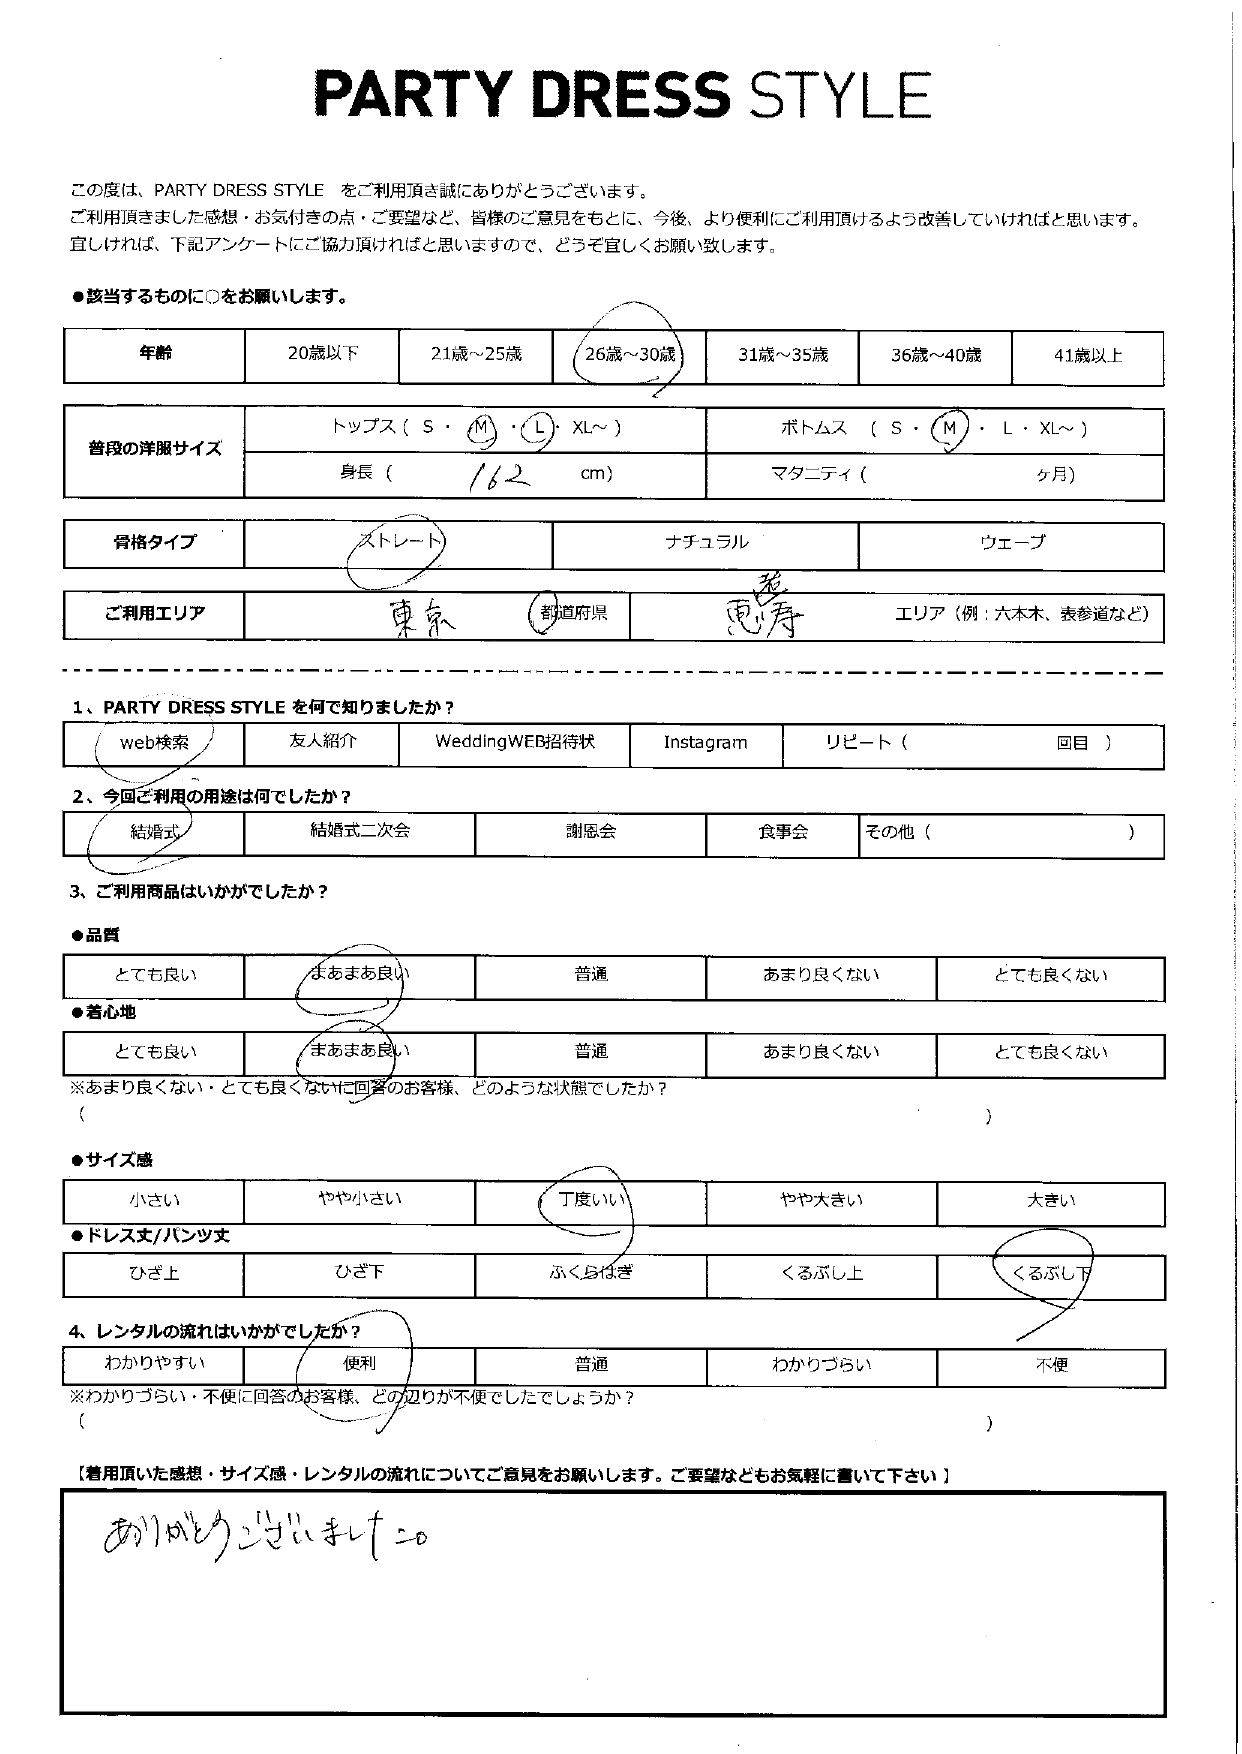 PARTY DRESS STYLE
この度は、PARTY DRESS STYLE をご利用頂き誠にありがとうございます。
ご利用頂きました感想・お気付きの点・ご要望など、皆様のご意見をもとに、今後、より便利にご利用頂けるよう改善していければと思います。
宜しければ、下記アンケートにご協力頂ければと思いますので、どうぞ宜しくお願い致します。
●該当するものに○をお願いします。
年齢 20歳以下 21歳～25歳 26歳～30歳 31歳～35歳 36歳～40歳 41歳以上
普段の洋服サイズ トップス ( S ・ M ・ L ・ XL～ ) ボトムス ( S ・ M ・ L ・ XL～ )
身長 ( 162 cm) マタニティ ( ヶ月)
骨格タイプ ストレート ナチュラル ウェーブ
ご利用エリア 東京 都道府県 恵比寿 エリア（例：六本木、表参道など）
1、PARTY DRESS STYLE を何で知りましたか？
web検索 友人紹介 WeddingWEB招待状 Instagram リピート ( 回目 )
2、今回ご利用の用途は何でしたか？
結婚式 結婚式二次会 謝恩会 食事会 その他 ( )
3、ご利用商品はいかがでしたか？
●品質
とても良い まあまあ良い 普通 あまり良くない とても良くない
●着心地
とても良い まあまあ良い 普通 あまり良くない とても良くない
※あまり良くない・とても良くないに回答のお客様、どのような状態でしたか？
( )
●サイズ感
小さい やや小さい 丁度いい やや大きい 大きい
●ドレス丈/パンツ丈
ひざ上 ひざ下 ふくらはぎ くるぶし上 くるぶし下
4、レンタルの流れはいかがでしたか？
わかりやすい 便利 普通 わかりづらい 不便
※わかりづらい・不便に回答のお客様、どの辺りが不便でしたでしょうか？
( )
【着用頂いた感想・サイズ感・レンタルの流れについてご意見をお願いします。ご要望などもお気軽に書いて下さい】
ありがとうございました。